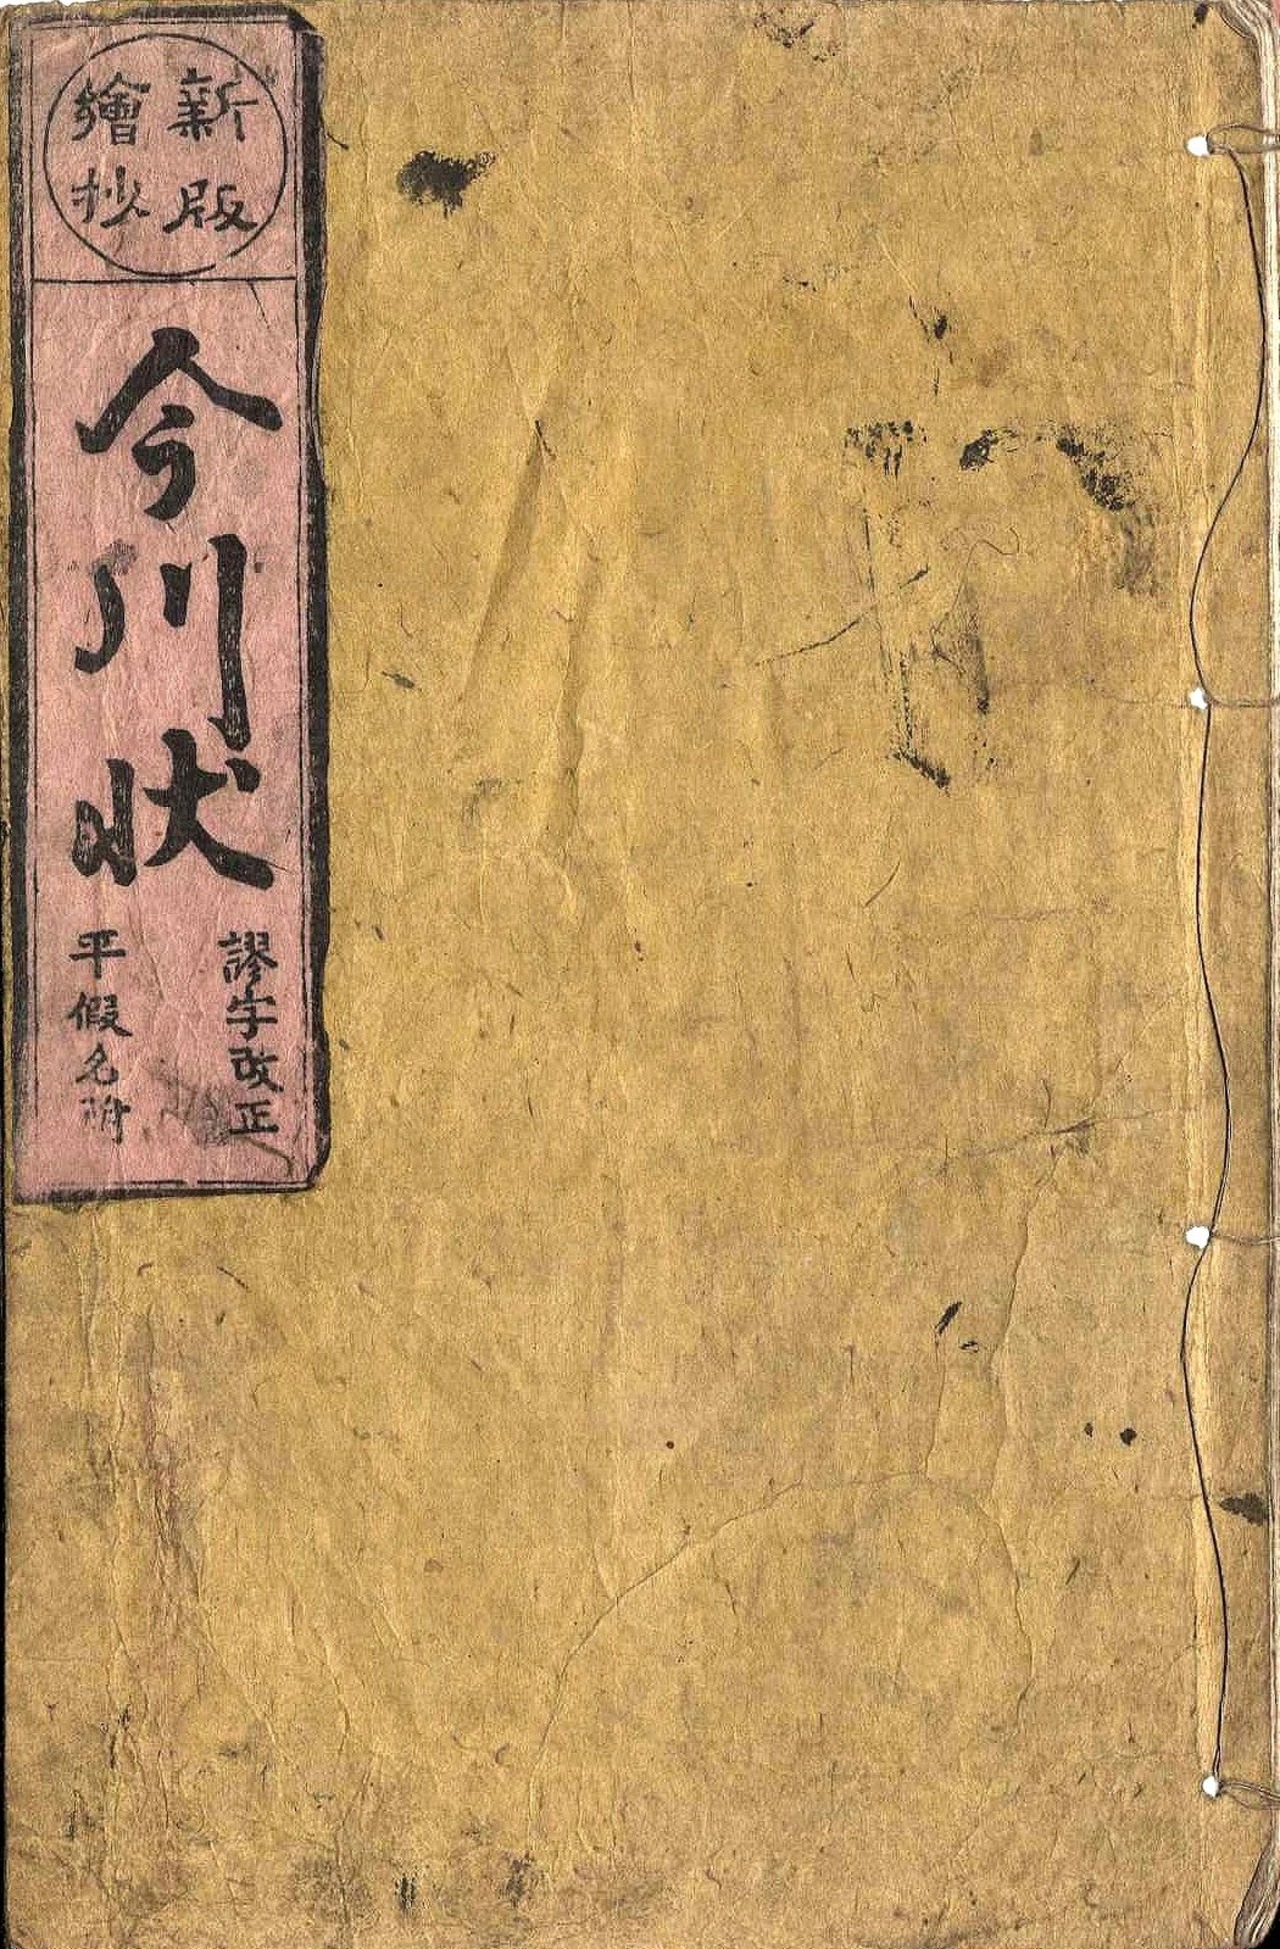 新版
繪抄
今川状
謬字改正
平假名附